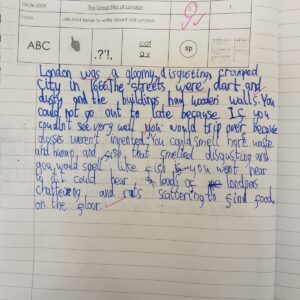 04.06.2025 The Great Fire of London 1
I can use past tense to write about old London.
ABC .?'!, cat
a y sp
London was a gloomy, disgusting, cramped
city in 1666. The streets were dart and
dusty and the buildings had wooden walls. You
could not go out to late because if you
couldn't see very well you would trip over because
glasses weren't invented. You could smell horse waste
and human, and fish, that smelled disgusting and
you would smell like fish if you went near
it. You could hear loads of londoners
chattering and rats scattering to find food
on the floor.